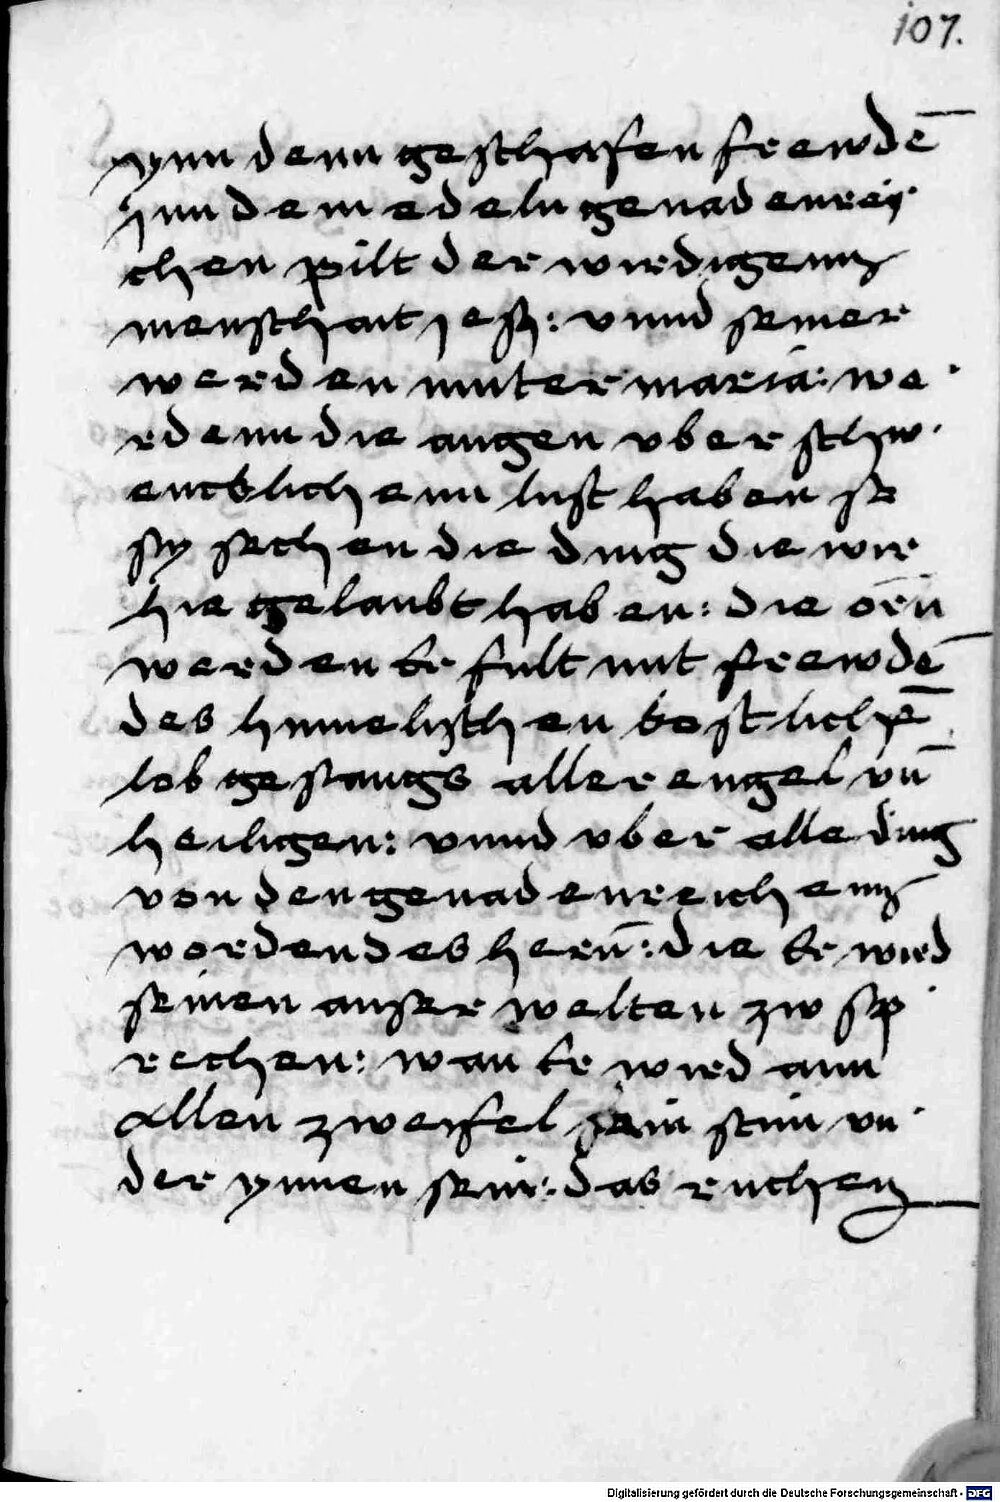 107.
ynn denn geschafen frewdē
ynn dem edeln genadenrei
chen pilt der wirdigenn
menschait jesu: vnnd seiner
werden muter maria: we
rdenn die augen vber schw
encklichenn lust haben so
sy sechen die ding die wir
hie gelaubt haben: die orn̄
werden er fult mit frewdē
des himelischen kostlichē
lob gesangs aller engel vn̄
heiligen: vnnd vber alle ding
von den genadenreichenn
worden des hern̄: die er wird
seinen auserwelten zw sp
rechen: wan er wird ann
allen zweifel sein stim vn
der ynnen sein: das ruchen
Digitalisierung gefördert durch die Deutsche Forschungsgemeinschaft - DFG